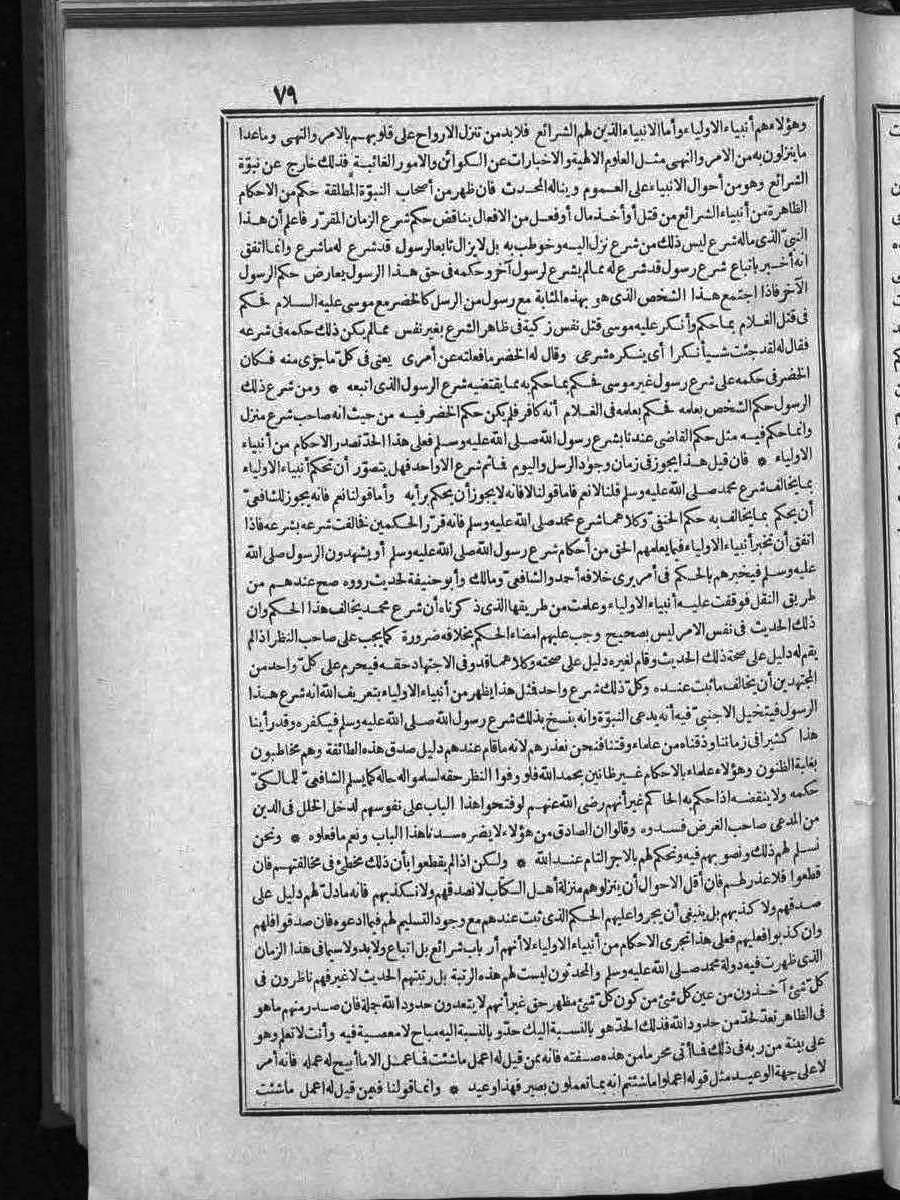 ٧٩
وهؤلاء هم أنبياء الاولياء وأما الانبياء الذين لهم الشرائع فلابد من تنزل الارواح على قلوبهم بالامر والنهى وماعدا
ما ينزلون به من الامر والنهى مثل العلوم الالهية والاخبارات عن الكوائن والامور الغائبة فذلك خارج عن نبوّة
الشرائع وهو من أحوال الانبياء على العموم ويناله المحدث فان ظهر من أصحاب النبوّة المطلقة حكم من الاحكام
الظاهرة من أنبياء الشرائع من قتل أو أخذ مال أو فعل من الافعال يناقض حكم شرع الزمان المقرّر فاعلم أن هذا
النبىّ الذى ماله شرع ليس ذلك من شرع نزل اليه وخوطب به بل لا يزال تابعا لرسول قد شرع له ما شرع وانما اتفق
انه أخبر باتباع شرع رسول قد شرع له ما لم يشرع لرسول آخر وحكمه فى حق هذا الرسول يعارض حكم الرسول
الآخر فاذا اجتمع هذا الشخص الذى هو بهذه المثابة مع رسول من الرسل كالخضر مع موسى عليه السلام فحكم
فى قتل الغلام بما حكم وأنكر عليه موسى قتل نفس زكية فى ظاهر الشرع بغير نفس مما لم يكن ذلك حكمه فى شرعه
فقال له لقد جئت شيأ نكرا أى ينكره شرعى وقال له الخضر ما فعلته عن أمرى يعنى فى كلّ ما جرى منه فكان
الخضر فى حكمه على شرع رسول غير موسى فحكم بما حكم به مما يقتضيه شرع الرسول الذى اتبعه * ومن شرع ذلك
الرسول حكم الشخص بعلمه فحكم بعلمه فى الغلام أنه كافر فلم يكن حكم الخضر فيه من حيث انه صاحب شرع منزل
وانما حكم فيه مثل حكم القاضى عندنا بشرع رسول الله صلى الله عليه وسلم فعلى هذا الحدّ تصدر الاحكام من أنبياء
الاولياء * فان قيل هذا يجوز فى زمان وجود الرسل واليوم فماثم شرع الا واحد فهل يتصوّر أن تحكم أنبياء الاولياء
بما يخالف شرع محمد صلى الله عليه وسلم قلنا لا نعم فاما قولنا لا فانه لا يجوز أن يحكم برأيه وأما قولنا نعم فانه يجوز للشافعىّ
أن يحكم بما يخالف به حكم الحنفىّ وكلاهما شرع محمد صلى الله عليه وسلم فانه قرّر الحكمين فخالفت شرعه بشرعه فاذا
اتفق أن تخبر أنبياء الاولياء فيما يعلمهم الحق من أحكام شرع رسول الله صلى الله عليه وسلم أو يشهدون الرسول صلى الله
عليه وسلم فيخبرهم بالحكم فى أمر يرى خلافه أحمد والشافعىّ ومالك وأبو حنيفة لحديث رووه صح عندهم من
طريق النقل فوقفت عليه أنبياء الاولياء وعلمت من طريقها الذى ذكرناه أن شرع محمد يخالف هذا الحكم وان
ذلك الحديث فى نفس الامر ليس بصحيح وجب عليهم امضاء الحكم بخلافه ضرورة كما يجب على صاحب النظر اذا لم
يقم له دليل على صحة ذلك الحديث وقام لغيره دليل على صحته وكلاهما قد وفى الاجتهاد حقه فيحرم على كلّ واحد من
المجتهدين أن يخالف ما ثبت عنده وكلّ ذلك شرع واحد فمثل هذا يظهر من أنبياء الاولياء بتعريف الله انه شرع هذا
الرسول فيتخيل الاجنبىّ فيه أنه يدعى النبوّة وانه ينسخ بذلك شرع رسول الله صلى الله عليه وسلم فيكفره وقد رأينا
هذا كثيرا فى زماننا وذقناه من علماء وقتنا فنحن نعذرهم لانه ما قام عندهم دليل صدق هذه الطائفة وهم مخاطبون
بغلبة الظنون وهؤلاء علماء بالاحكام غير ظانين بحمد الله فلو وفوا النظر حقه لسلموا له حاله كما يسلم الشافعىّ للمالكىّ
حكمه ولا ينقضه اذا حكم به الحاكم غير أنهم رضى الله عنهم لو فتحوا هذا الباب على نفوسهم لدخل الخلل فى الدين
من المدعى صاحب الغرض فسدوه وقالوا ان الصادق من هؤلاء لا يضره سدنا هذا الباب ونعم ما فعلوه * ونحن
نسلم لهم ذلك ونصوّبهم فيه ونحكم لهم بالاجر التام عند الله * ولكن اذا لم يقطعوا بأن ذلك مخطئ فى مخالفتهم فان
قطعوا فلا عذر لهم فان أقل الاحوال أن ينزلوهم منزلة أهل الكتاب لا نصدقهم ولا نكذبهم فانه ما دلّ لهم دليل على
صدقهم ولا كذبهم بل ينبغى أن يجروا عليهم الحكم الذى ثبت عندهم مع وجود التسليم لهم فيما ادعوه فان صدقوا فلهم
وان كذبوا فعليهم فعلى هذا تجرى الاحكام من أنبياء الاولياء لا أنهم أرباب شرائع بل اتباع ولابد ولا سيما فى هذا الزمان
الذى ظهرت فيه دولة محمد صلى الله عليه وسلم والمحدثون ليست لهم هذه الرتبة بل رتبتهم الحديث لا غير فهم ناظرون فى
كلّ شئ آخذون من عين كل شئ من كون كلّ شئ مظهر حق غير أنهم لا يتعدون حدود الله جملة فان صدر منهم ما هو
فى الظاهر تعدّ لحدّ من حدود الله فذلك الحدّ هو بالنسبة اليك حدّ و بالنسبة اليه مباح لا معصية فيه وأنت لا تعلم وهو
على بينة من ربه فى ذلك فما أتى محرما من هذه صفته فانه ممن قيل له اعمل ما شئت فما عمل الا ما أبيح له عمله فانه أمر
لا على جهة الوعيد مثل قوله اعملوا ما شئتم انه بما تعملون بصير فهذا وعيد * وانما قولنا فيمن قيل له اعمل ما شئت